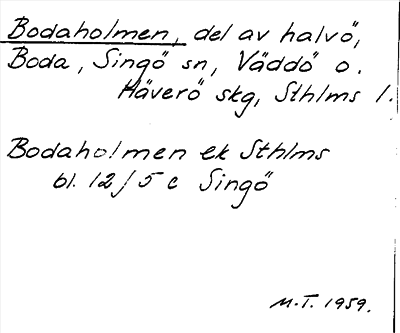 Bodaholmen, del av halvö,
Boda, Singö sn, Väddö o.
Häverö skg, Sthlms l.
Bodaholmen ek Sthlms
bl. 12/5 c Singö
M.T. 1959.